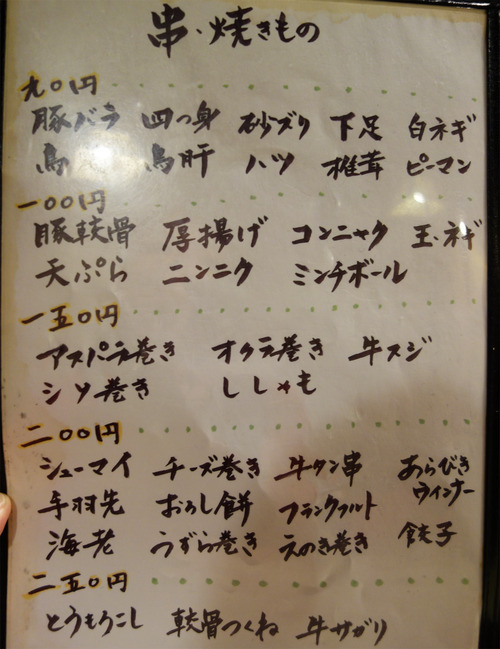 串・焼きもの
九〇円
豚バラ 四つ身 砂ズリ 下足 白ネギ
鳥 鳥肝 ハツ 椎茸 ピーマン
一〇〇円
豚軟骨 厚揚げ コンニャク 玉ネギ
天ぷら ニンニク ミンチボール
一五〇円
アスパラ巻き オクラ巻き 牛スジ
シソ巻き ししゃも
二〇〇円
シューマイ チーズ巻き 牛タン串 あらびきウィンナー
手羽先 おろし餅 フランクフルト
海老 うずら巻き えのき巻き 餃子
二五〇円
とうもろこし 軟骨つくね 牛サガリ